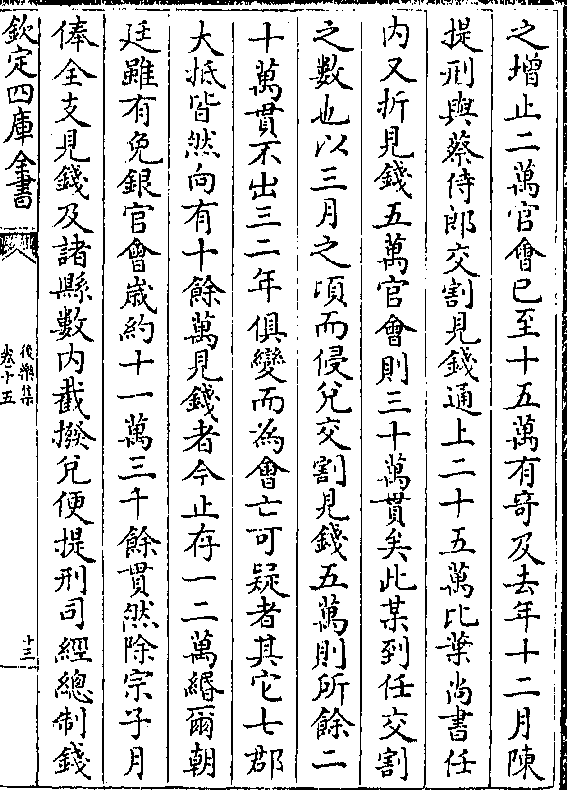 之增止二萬官會已至十五萬有奇及去年十二月陳
提刑與蔡侍郎交割見錢通上二十五萬比葉尚書任
内又折見錢五萬官會則三十萬貫矣此某到任交割
之數也以三月之頃而侵兌交割見錢五萬則所餘二
十萬貫不出三二年俱變而為會亡可疑者其它七郡
大抵皆然向有十餘萬見錢者今止存一二萬緡爾朝
廷雖有免銀官會歳約十一萬三千餘貫然除宗子月
俸全支見錢及諸縣數内截撥兌便提刑司經總制錢
欽定四庫全書
後樂集
卷十五
十三